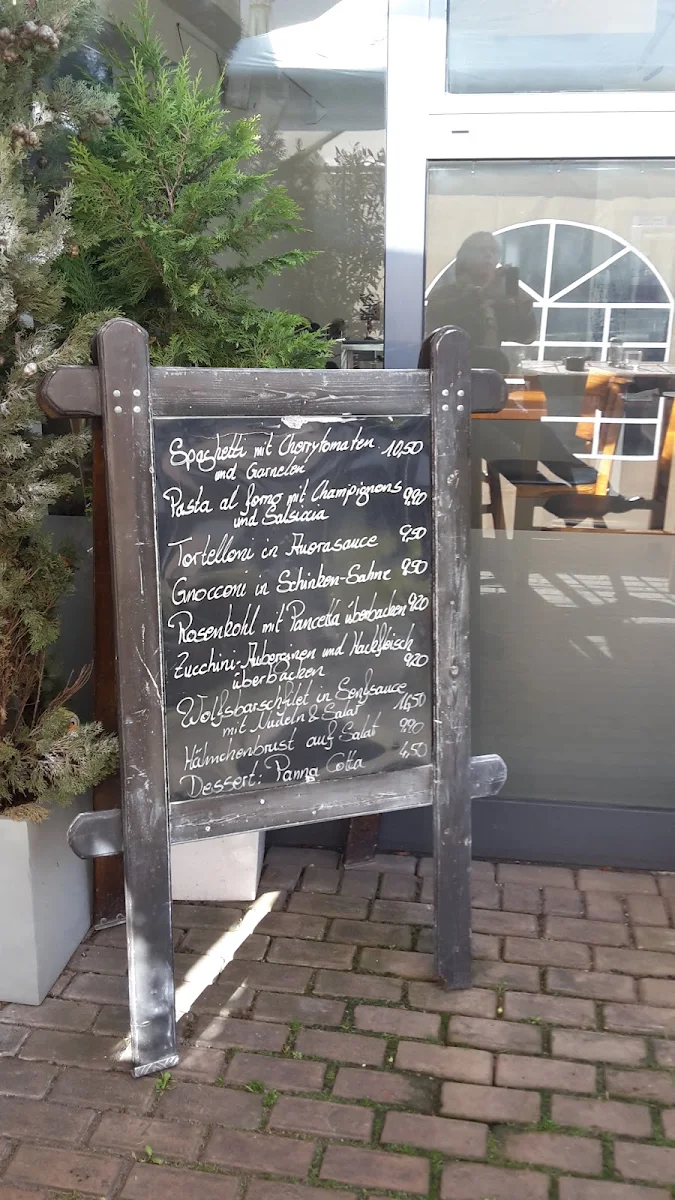 Spaghetti mit Cherrytomaten 10,50
und Garnelen
Pasta al forno mit Champignons 9,90
und Salsiccia
Tortelloni in Aurorasauce 9,50
Gnocconi in Schinken-Sahne 9,50
Rosenkohl mit Pancetta überbacken 9,20
Zucchini-Auberginen und Hackfleisch
überbacken 9,20
Wolfsbarschfilet in Senfsauce
mit Nudeln & Salat 11,50
Hähnchenbrust auf Salat 9,90
Dessert: Panna Cotta 4,50